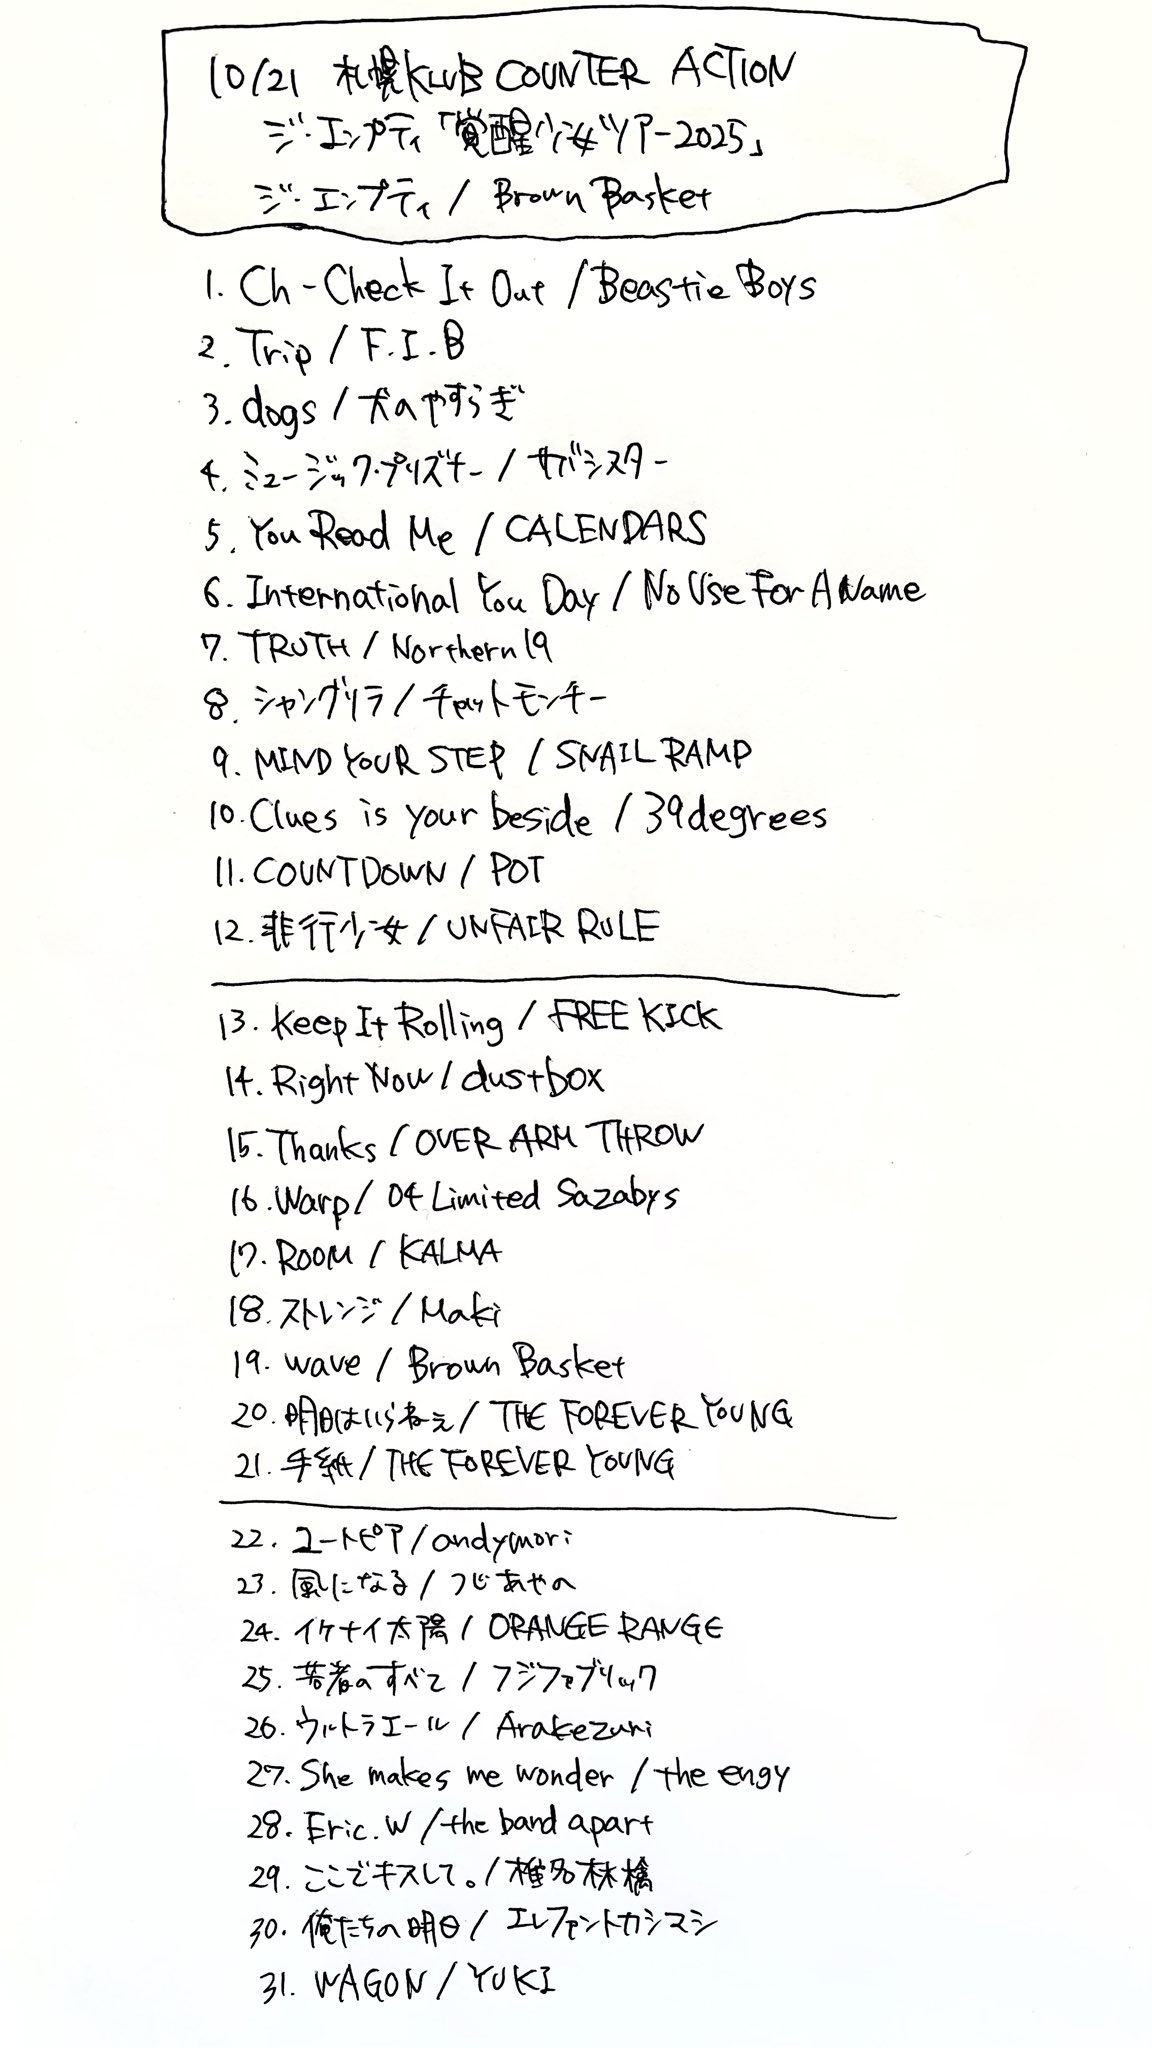 10/21 札幌KLUB COUNTER ACTION
ジ・エンプティ「覚醒少女ツアー2025」
ジ・エンプティ / Brown Basket
1. Ch-Check It Out / Beastie Boys
2. Trip / F.I.B
3. dogs / 犬のやすらぎ
4. ミュージック・プリズナー / サバシスター
5. You Read Me / CALENDARS
6. International You Day / No Use For A Name
7. TRUTH / Northern19
8. シャングリラ / チャットモンチー
9. MIND YOUR STEP / SNAIL RAMP
10. Clues is your beside / 39degrees
11. COUNTDOWN / POT
12. 非行少女 / UNFAIR RULE
13. Keep It Rolling / FREE KICK
14. Right Now / dustbox
15. Thanks / OVER ARM THROW
16. Warp / 04 Limited Sazabys
17. ROOM / KALMA
18. ストレンジ / Maki
19. wave / Brown Basket
20. 明日はいらねぇ / THE FOREVER YOUNG
21. 手紙 / THE FOREVER YOUNG
22. ユートピア / andymori
23. 風になる / つじあやの
24. イケナイ太陽 / ORANGE RANGE
25. 若者のすべて / フジファブリック
26. ウルトラエール / Arakezuri
27. She makes me wonder / the engy
28. Eric.W / the band apart
29. ここでキスして。/ 椎名林檎
30. 俺たちの明日 / エレファントカシマシ
31. WAGON / YUKI